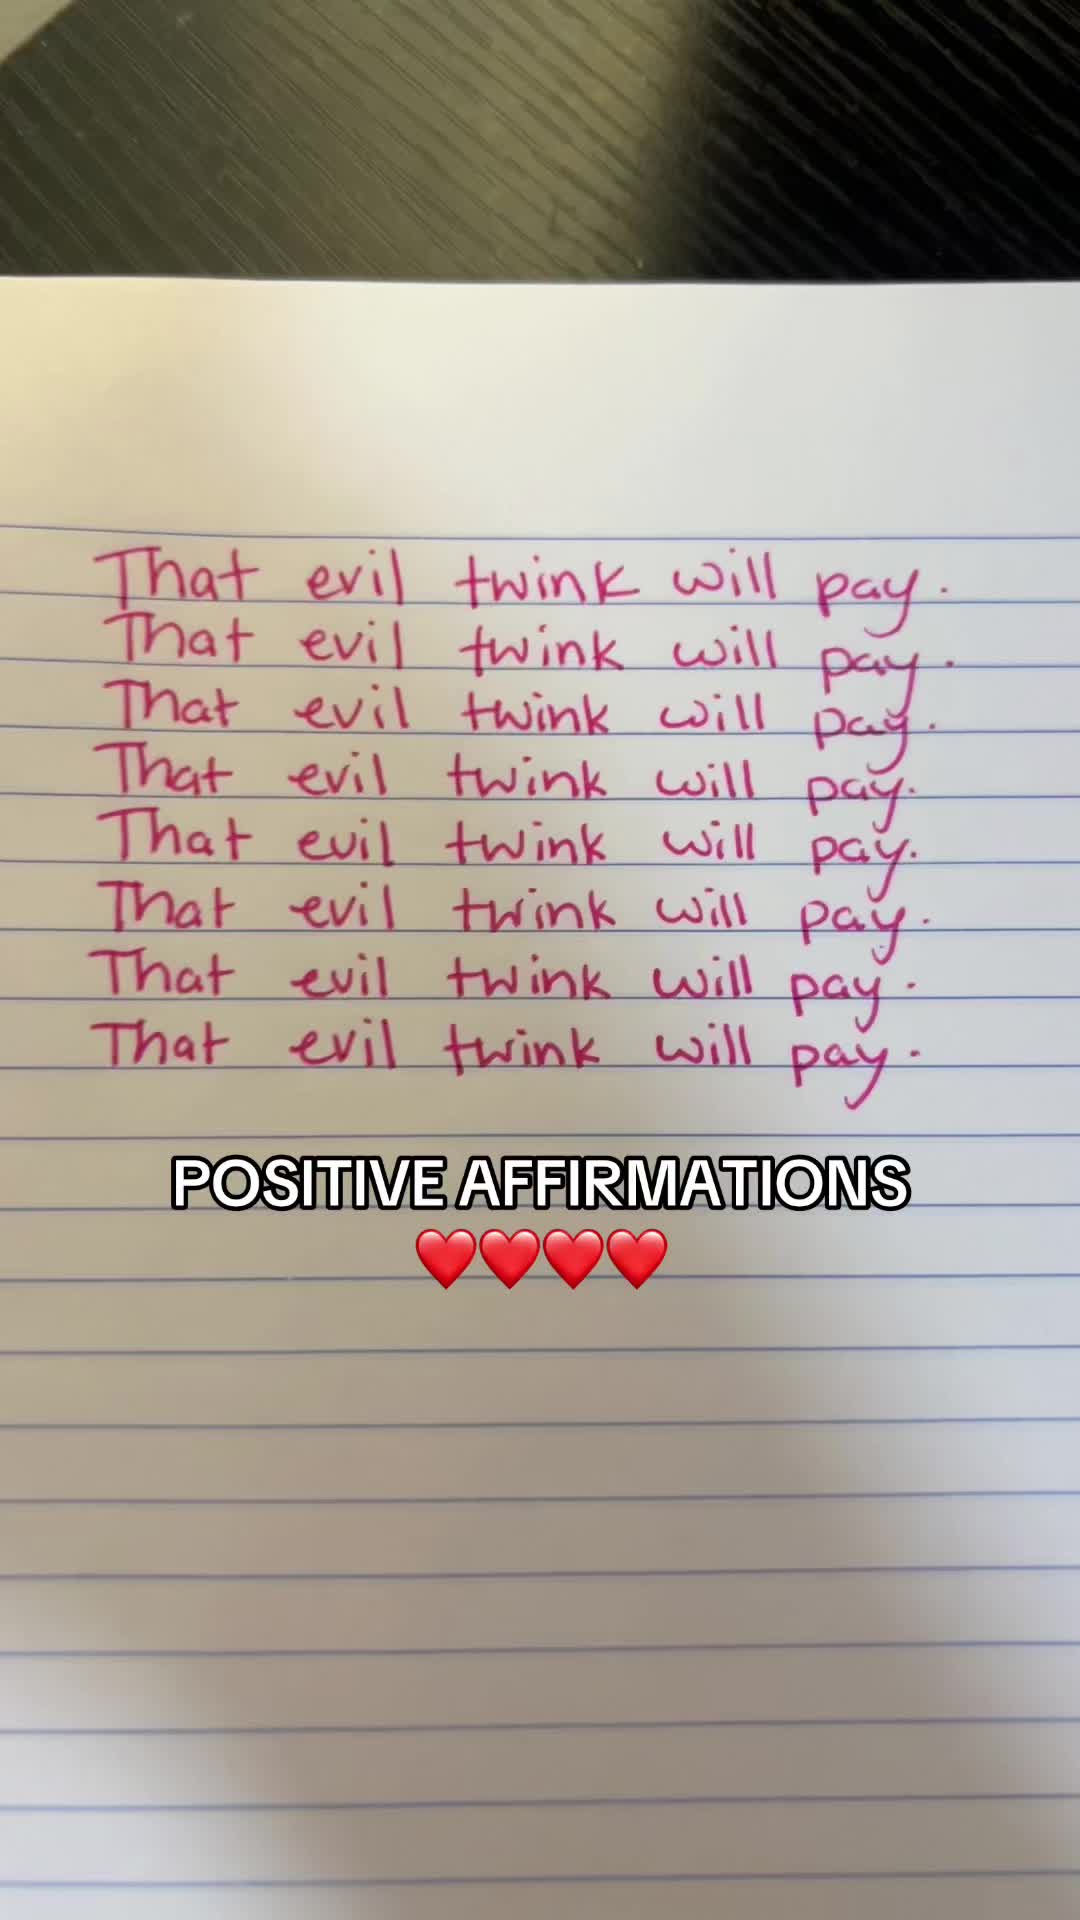 That evil twink will pay.
That evil twink will pay.
That evil twink will pay.
That evil twink will pay.
That evil twink will pay.
That evil twink will pay.
That evil twink will pay.
That evil twink will pay.
POSITIVE AFFIRMATIONS
❤️❤️❤️❤️